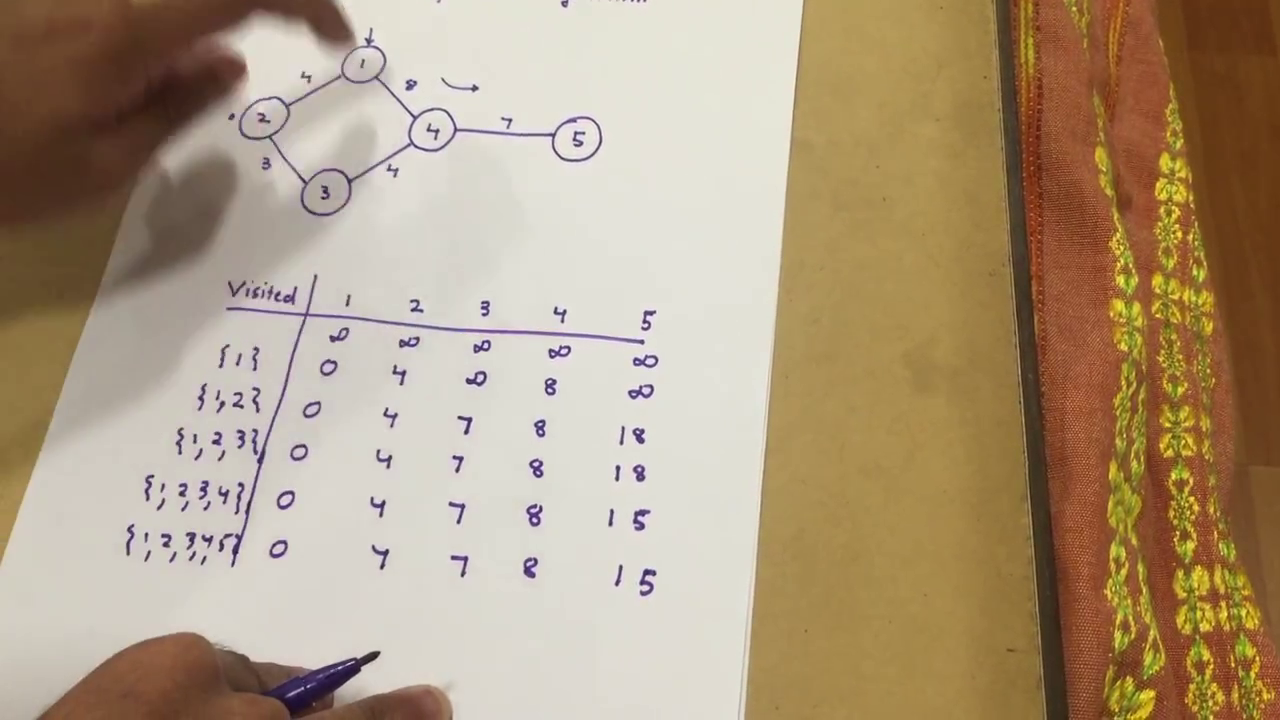 1
4
8
2
4
7
5
3
4
3
Visited 1 2 3 4 5
∞ ∞ ∞ ∞ ∞
{1} 0 4 ∞ 8 ∞
{1,2} 0 4 7 8 18
{1,2,3} 0 4 7 8 18
{1,2,3,4} 0 4 7 8 15
{1,2,3,4,5} 0 4 7 8 15